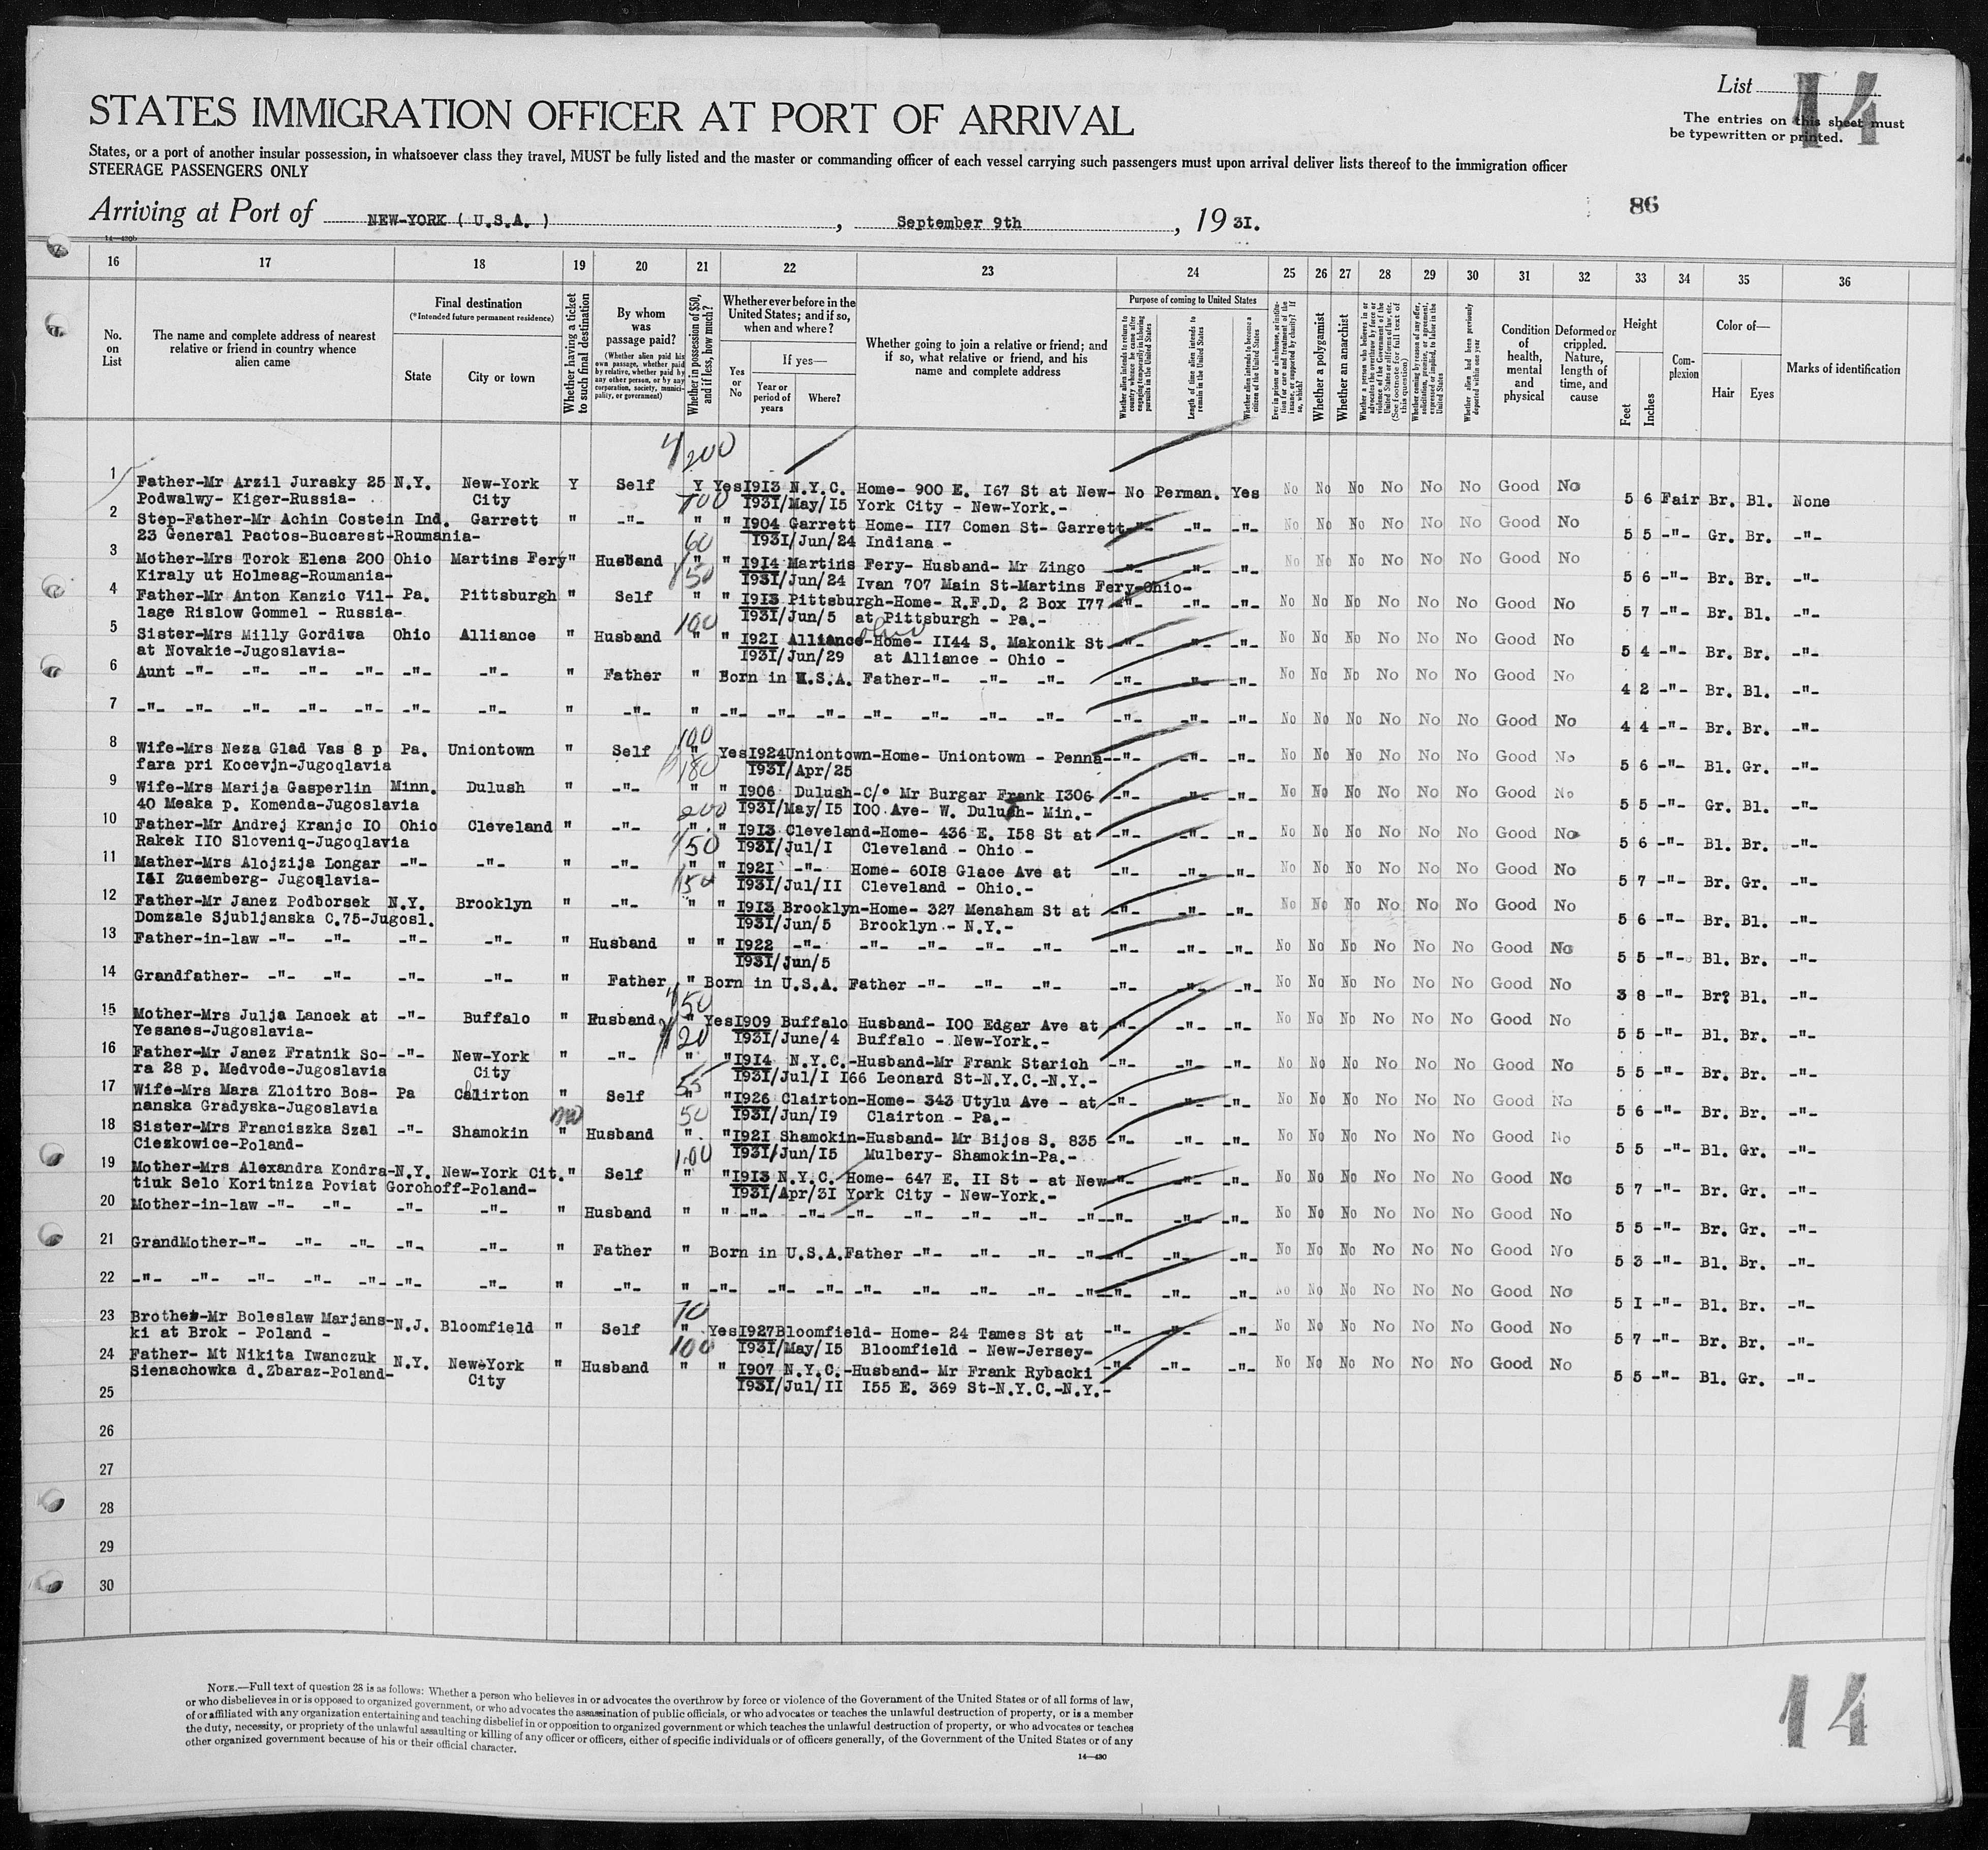 List 14
The entries on this sheet must
be typewritten or printed.
STATES IMMIGRATION OFFICER AT PORT OF ARRIVAL
States, or a port of another insular possession, in whatsoever class they travel, MUST be fully listed and the master or commanding officer of each vessel carrying such passengers must upon arrival deliver lists thereof to the immigration officer
STEERAGE PASSENGERS ONLY
86
Arriving at Port of NEW-YORK ( U.S.A. ) , September 9th , 19 31.
16 17 18 19 20 21 22 23 24 25 26 27 28 29 30 31 32 33 34 35 36
No. on List
The name and complete address of nearest relative or friend in country whence alien came
Final destination
(*Intended future permanent residence)
State
City or town
Whether having a ticket to such final destination
By whom was passage paid?
(Whether alien paid his own passage, whether paid by relative, whether paid by any other person, or by any corporation, society, municipality, or government)
Whether in possession of $50, and if less, how much?
Whether ever before in the United States; and if so, when and where?
Yes or No
If yes—
Year or period of years
Where?
Whether going to join a relative or friend; and if so, what relative or friend, and his name and complete address
Purpose of coming to United States
Whether alien intends to return to country whence he came after engaging temporarily in laboring pursuits in the United States
Length of time alien intends to remain in the United States
Whether alien intends to become a citizen of the United States
Ever in prison or almshouse, or institution for care and treatment of the insane, or supported by charity? If so, which?
Whether a polygamist
Whether an anarchist
Whether coming by reason of any offer, solicitation, promise, or agreement, expressed or implied, to labor in the United States
Whether alien had been previously deported within one year
Condition of health, mental and physical
Deformed or crippled. Nature, length of time, and cause
Height
Feet
Inches
Complexion
Color of—
Hair
Eyes
Marks of identification
200
1 Father-Mr Arzil Jurasky 25 N.Y. New-York Y Self Y Yes I913 N.Y.C. Home- 900 E. I67 St at New- No Perman. Yes No No No No No No Good No 5 6 Fair Br. Bl. None
Podwalwy- Kiger-Russia- City I931/May/I5 York City - New-York.-
2 Step-Father-Mr Achin Costein Ind. Garrett " -"- " " I904 Garrett Home- II7 Comen St- Garrett -"- -"- -"- No No No No No No Good No 5 5 -"- Gr. Br. -"-
23 General Pactos-Bucarest-Roumania- 60 I931/Jun/24 Indiana -
3 Mother-Mrs Torok Elena 200 Ohio Martins Fery " Husband " " I9I4 Martins Fery- Husband- Mr Zingo -"- -"- -"- No No No No No No Good No 5 6 -"- Br. Br. -"-
Kiraly ut Holmeag-Roumania- I931/Jun/24 Ivan 707 Main St-Martins Fery-Ohio-
4 Father-Mr Anton Kanzic Vil- Pa. Pittsburgh " Self " " I9I3 Pittsburgh-Home- R.F.D. 2 Box I77 -"- -"- -"- No No No No No No Good No 5 7 -"- Br. Bl. -"-
lage Rislow Gommel - Russia- 100 I931/Jun/5 at Pittsburgh - Pa.-
5 Sister-Mrs Milly Gordiva Ohio Alliance " Husband " " I92I Alliance-Home- II44 S. Makonik St -"- -"- -"- No No No No No No Good No 5 4 -"- Br. Br. -"-
at Novakie-Jugoslavia- I931/Jun/29 at Alliance - Ohio -
6 Aunt -"- -"- -"- -"- -"- -"- " Father " Born in U.S.A. Father-"- -"- -"- -"- -"- -"- No No No No No No Good No 4 2 -"- Br. Bl. -"-
7 -"- -"- -"- -"- -"- -"- -"- " -"- " -"- -"- -"- -"- -"- -"- -"- -"- -"- -"- No No No No No No Good No 4 4 -"- Br. Br. -"-
100
8 Wife-Mrs Neza Glad Vas 8 p Pa. Uniontown " Self " Yes I924 Uniontown-Home- Uniontown - Penna- -"- -"- -"- No No No No No No Good No 5 6 -"- Bl. Gr. -"-
fara pri Kocevjn-Jugoqlavia 180 I931/Apr/25
9 Wife-Mrs Marija Gasperlin Minn. Dulush " -"- " " I906 Dulush-C/° Mr Burgar Frank I306 -"- -"- -"- No No No No No No Good No 5 5 -"- Gr. Bl. -"-
40 Meaka p. Komenda-Jugoslavia 200 I931/May/I5 I00 Ave- W. Dulush- Min.-
10 Father-Mr Andrej Kranjc IO Ohio Cleveland " -"- " " I9I3 Cleveland-Home- 436 E. I58 St at -"- -"- -"- No No No No No No Good No 5 6 -"- Bl. Br. -"-
Rakek IIO Sloveniq-Jugoqlavia 50 I931/Jul/I Cleveland - Ohio -
11 Mather-Mrs Alojzija Longar -"- -"- " -"- " " I92I -"- Home- 60I8 Glace Ave at -"- -"- -"- No No No No No No Good No 5 7 -"- Br. Gr. -"-
I4I Zuzemberg- Jugoqlavia- 50 I931/Jul/II Cleveland - Ohio.-
12 Father-Mr Janez Podborsek N.Y. Brooklyn " -"- " " I9I3 Brooklyn-Home- 327 Menaham St at -"- -"- -"- No No No No No No Good No 5 6 -"- Br. Bl. -"-
Domzale Sjubljanska C.75-Jugosl. I931/Jun/5 Brooklyn - N.Y.-
13 Father-in-law -"- -"- -"- -"- " Husband " " I922 -"- -"- -"- -"- -"- -"- -"- -"- No No No No No No Good No 5 5 -"- Bl. Br. -"-
I931/Jun/5
14 Grandfather- -"- -"- -"- -"- " Father " Born in U.S.A. Father -"- -"- -"- -"- -"- -"- No No No No No No Good No 3 8 -"- Br? Bl. -"-
50
15 Mother-Mrs Julja Lancek at -"- Buffalo " Husband " Yes I909 Buffalo Husband- I00 Edgar Ave at -"- -"- -"- No No No No No No Good No 5 5 -"- Bl. Br. -"-
Yesanes-Jugoslavia- 20 I931/June/4 Buffalo - New-York.-
16 Father-Mr Janez Fratnik So- -"- New-York " -"- " " I9I4 N.Y.C.-Husband-Mr Frank Starich -"- -"- -"- No No No No No No Good No 5 5 -"- Br. Br. -"-
ra 28 p. Medvode-Jugoslavia City 55 I931/Jul/I I66 Leonard St-N.Y.C.-N.Y.-
17 Wife-Mrs Mara Zloitro Bos- Pa Clairton " Self " " I926 Clairton-Home- 343 Utylu Ave - at -"- -"- -"- No No No No No No Good No 5 6 -"- Br. Br. -"-
nanska Gradyska-Jugoslavia no 50 I931/Jun/I9 Clairton - Pa.-
18 Sister-Mrs Franciszka Szal -"- Shamokin " Husband " " I92I Shamokin-Husband- Mr Bijos S. 835 -"- -"- -"- No No No No No No Good No 5 5 -"- Bl. Gr. -"-
Ciezkowice-Poland- 100 I931/Jun/I5 Mulbery- Shamokin-Pa.-
19 Mother-Mrs Alexandra Kondra- N.Y. New-York Cit. " Self " " I9I3 N.Y.C. Home- 647 E. II St - at New -"- -"- -"- No No No No No No Good No 5 7 -"- Br. Gr. -"-
tiuk Selo Koritniza Poviat Gorohoff-Poland- I931/Apr/3I York City - New-York.-
20 Mother-in-law -"- -"- -"- -"- " Husband " " -"- -"- -"- -"- -"- -"- -"- -"- -"- -"- No No No No No No Good No 5 5 -"- Br. Gr. -"-
21 GrandMother-"- -"- -"- -"- -"- " Father " Born in U.S.A. Father -"- -"- -"- -"- -"- -"- -"- No No No No No No Good No 5 3 -"- Bl. Br. -"-
22 -"- -"- -"- -"- -"- -"- -"- " -"- " -"- -"- -"- -"- -"- -"- -"- -"- -"- -"- -"- No No No No No No Good No 5 I -"- Bl. Br. -"-
70
23 Brother-Mr Boleslaw Marjans- N.J. Bloomfield " Self " Yes I927 Bloomfield- Home- 24 Tames St at -"- -"- -"- No No No No No No Good No 5 7 -"- Br. Br. -"-
ki at Brok - Poland - 100 I931/May/I5 Bloomfield - New-Jersey-
24 Father- Mt Nikita Iwanczuk N.Y. New-York " Husband " " I907 N.Y.C.-Husband- Mr Frank Rybacki -"- -"- -"- No No No No No No Good No 5 5 -"- Bl. Gr. -"-
Sienachowka d.Zbaraz-Poland- City I931/Jul/II I55 E. 369 St-N.Y.C.-N.Y.-
25
26
27
28
29
30
NOTE.—Full text of question 28 is as follows: Whether a person who believes in or advocates the overthrow by force or violence of the Government of the United States or of all forms of law,
or who disbelieves in or is opposed to organized government, or who advocates the assassination of public officials, or who advocates or teaches the unlawful destruction of property, or is a member
of or affiliated with any organization entertaining and teaching disbelief in or opposition to organized government or which teaches the unlawful destruction of property, or who advocates or teaches
the duty, necessity, or propriety of the unlawful assaulting or killing of any officer or officers, either of specific individuals or of officers generally, of the Government of the United States or of any
other organized government because of his or their official character.
14—430
14